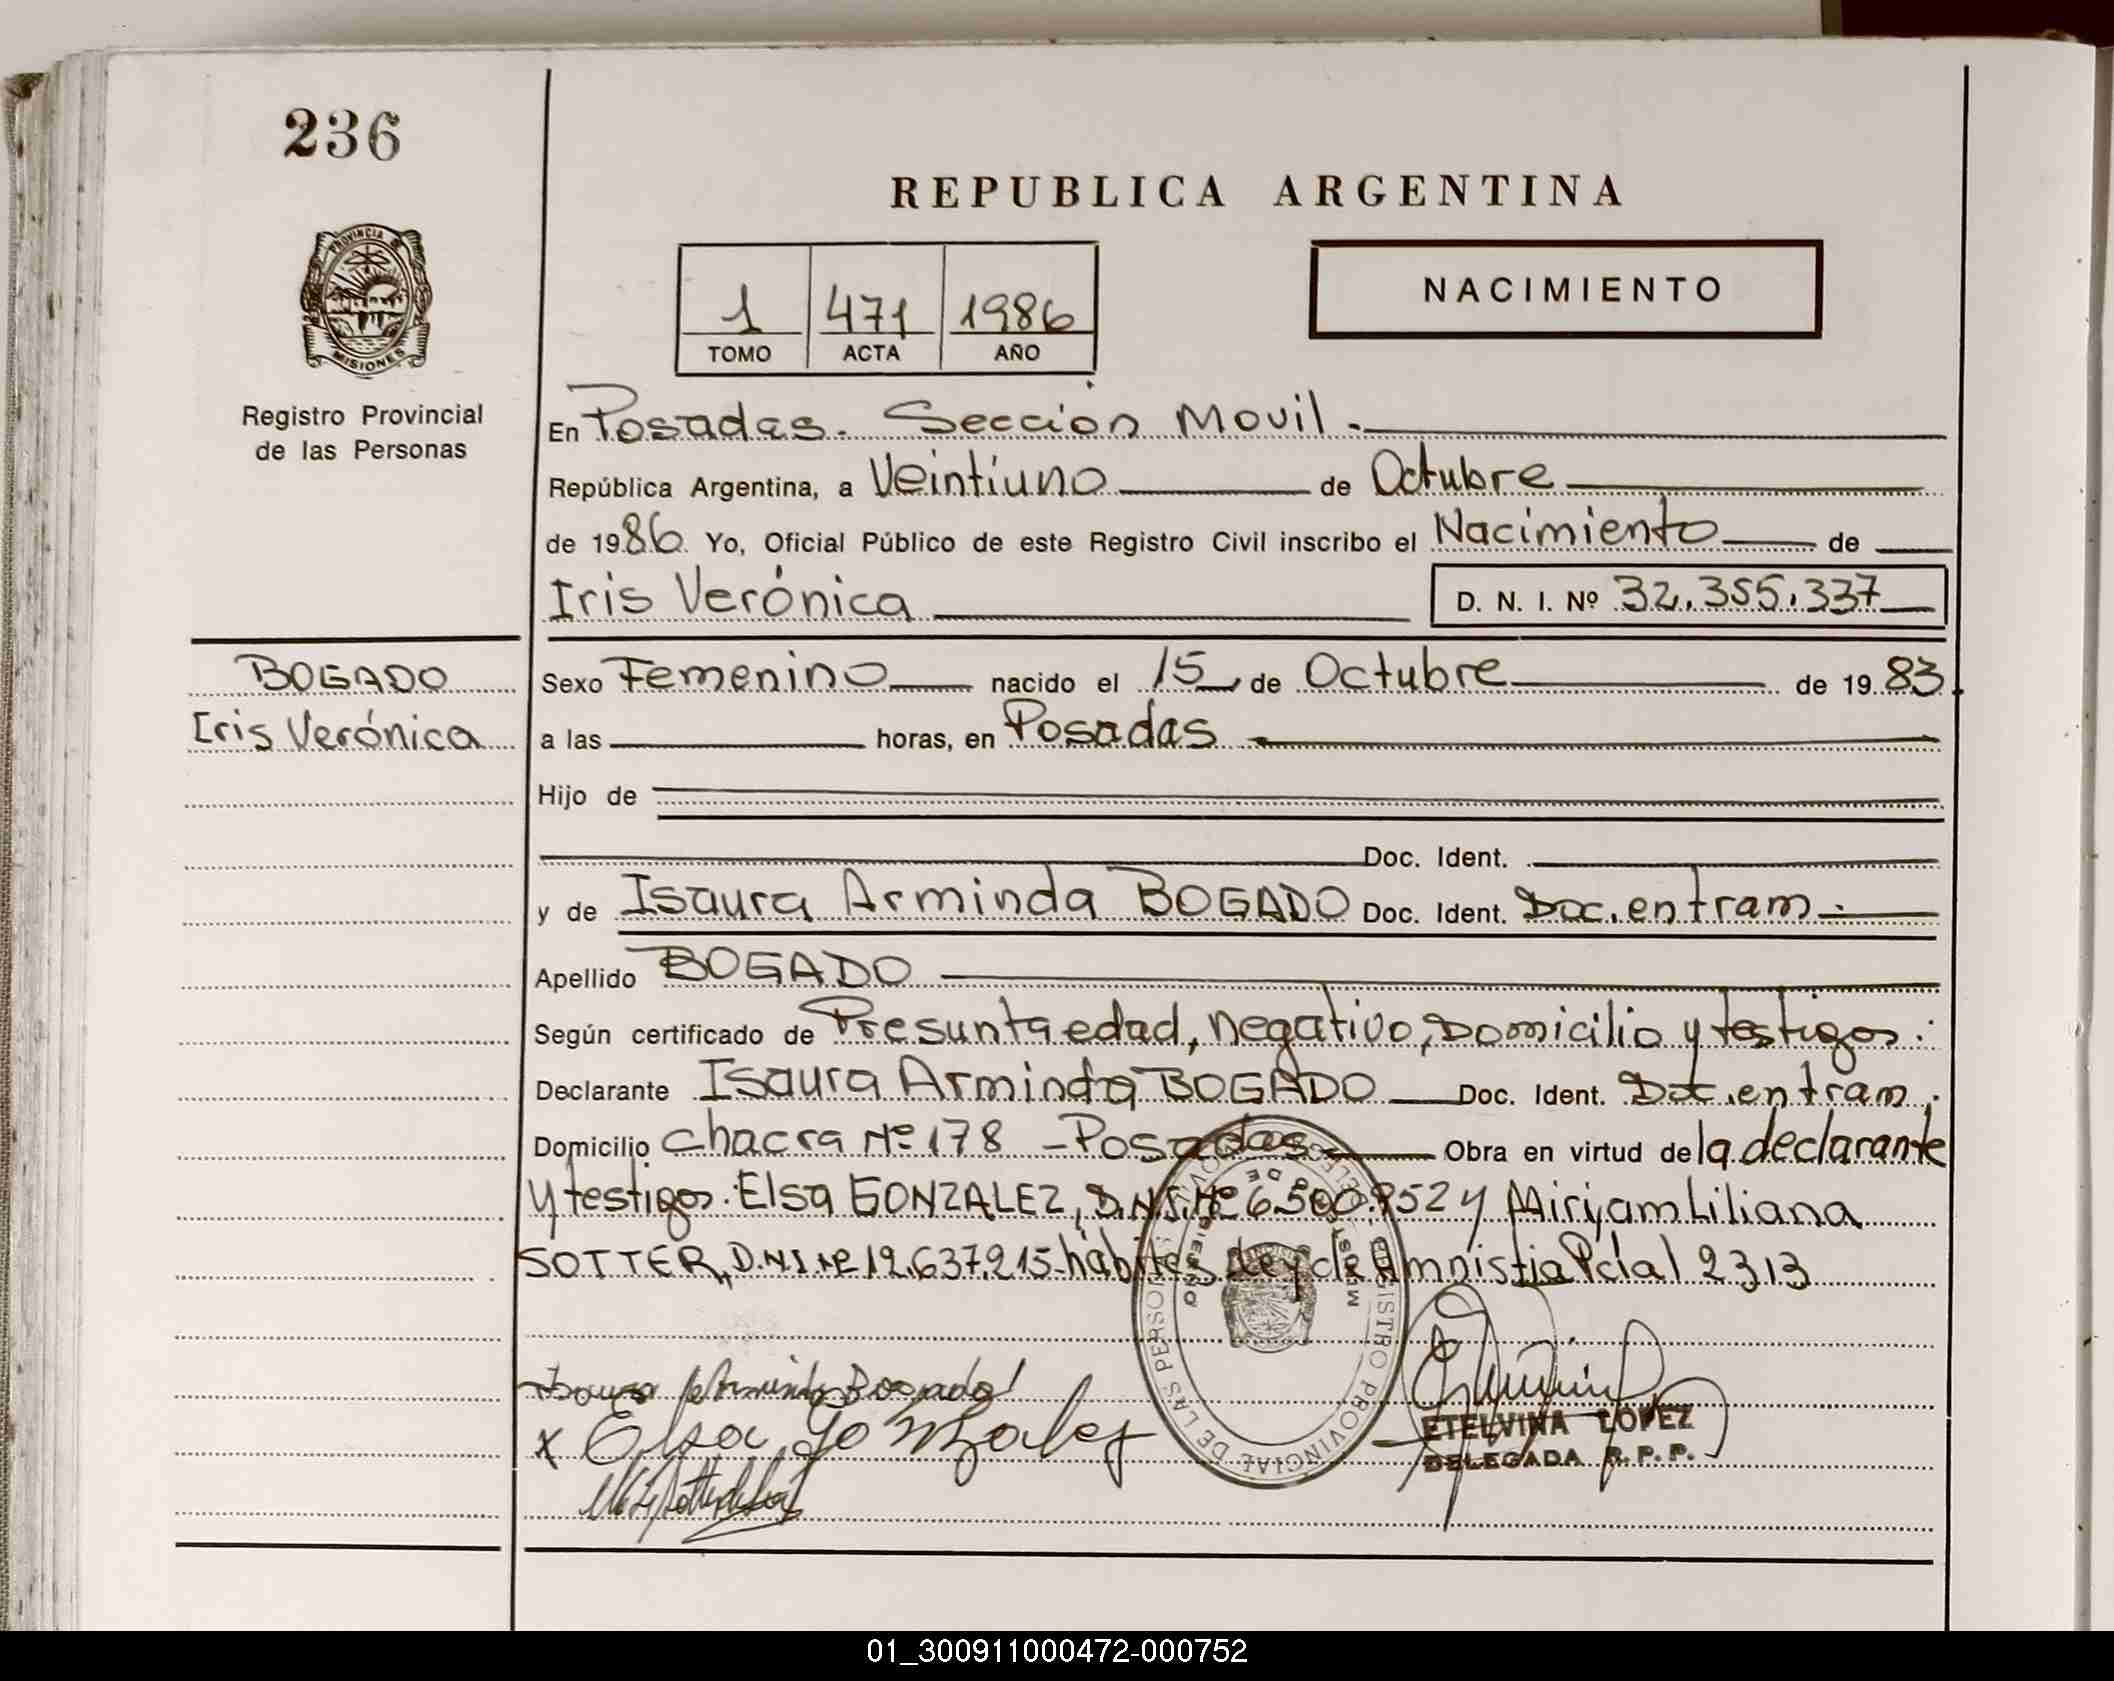 236
REPUBLICA ARGENTINA
PROVINCIA DE
MISIONES
Registro Provincial
de las Personas
1 471 1986
TOMO ACTA AÑO
NACIMIENTO
En Posadas. Sección Movil.
República Argentina, a Veintiuno de Octubre
de 1986. Yo, Oficial Público de este Registro Civil inscribo el Nacimiento de
Iris Verónica D. N. I. Nº 32.355.337
BOGADO
Iris Verónica
Sexo Femenino nacido el 15 de Octubre de 1983.
a las horas, en Posadas
Hijo de
Doc. Ident.
y de Isaura Arminda BOGADO Doc. Ident. Doc. en tram.
Apellido BOGADO
Según certificado de Presunta edad, negativo, Domicilio y testigos:
Declarante Isaura Arminda BOGADO Doc. Ident. Doc. en tram.
Domicilio chacra Nº 178 - Posadas Obra en virtud de la declarante
y testigos: Elsa GONZALEZ, D.N.I. Nº 6.500.952 y Miriam Liliana
SOTTER, D.N.I. Nº 12.637.215- hábiles Ley de Amnistia Pcial 2313
REGISTRO PROVINCIAL DE LAS PERSONAS
Isaura Arminda Bogado
x Elsa Gonzalez
ETELVINA LOPEZ
DELEGADA R.P.P.
01_300911000472-000752